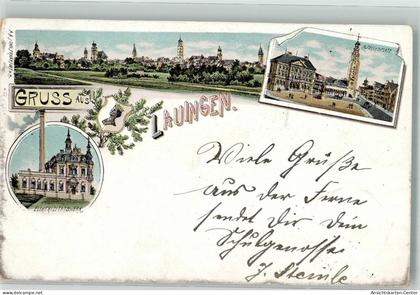 GRUSS AUS
LAUINGEN.
Viele Grüße
aus der Ferne
sendet Dir Dein
Schulgenosse
J. Steinle
Ansichtskarten-Center